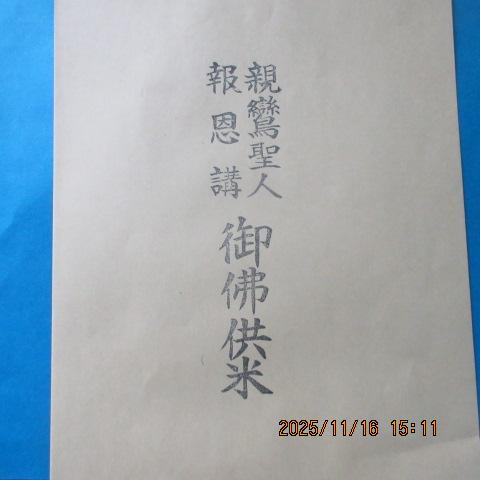 親鸞聖人
報恩講
御佛供米
2025/11/16 15:11